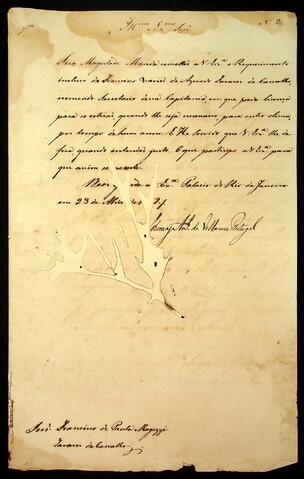 Illmo e Exmo Snr
N 2
Sua Magestade Manda remetter a V. Exa o Requerimento
incluso de Francisco Xavier de Azevedo Tavares de Carvalho,
nomeado Secretario dessa Capitania, em que pede licença
para se retirar, quando lhe seja necessario, para outro clima,
por tempo de hum anno: E He Servido que V. Exa lhe de-
fira quando entender justo. O que participo a V. Exa para
que assim se execute.
Deos guarde a V. Exa Palacio do Rio de Janeiro
em 23 de de
Thomaz Anto de Villanova Portugal
Snr Francisco de Paula Magessi
Tavares de Carvalho